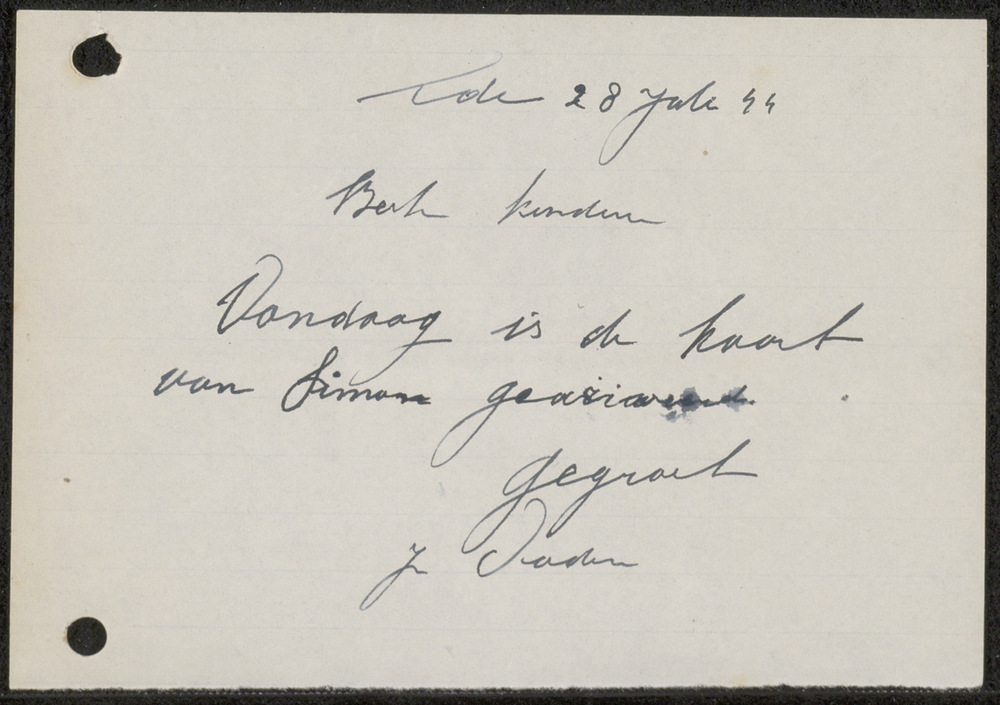 Ede 28 Juli 44
Beste kinderen
Vandaag is de kaart
van Simon
gegroet
J